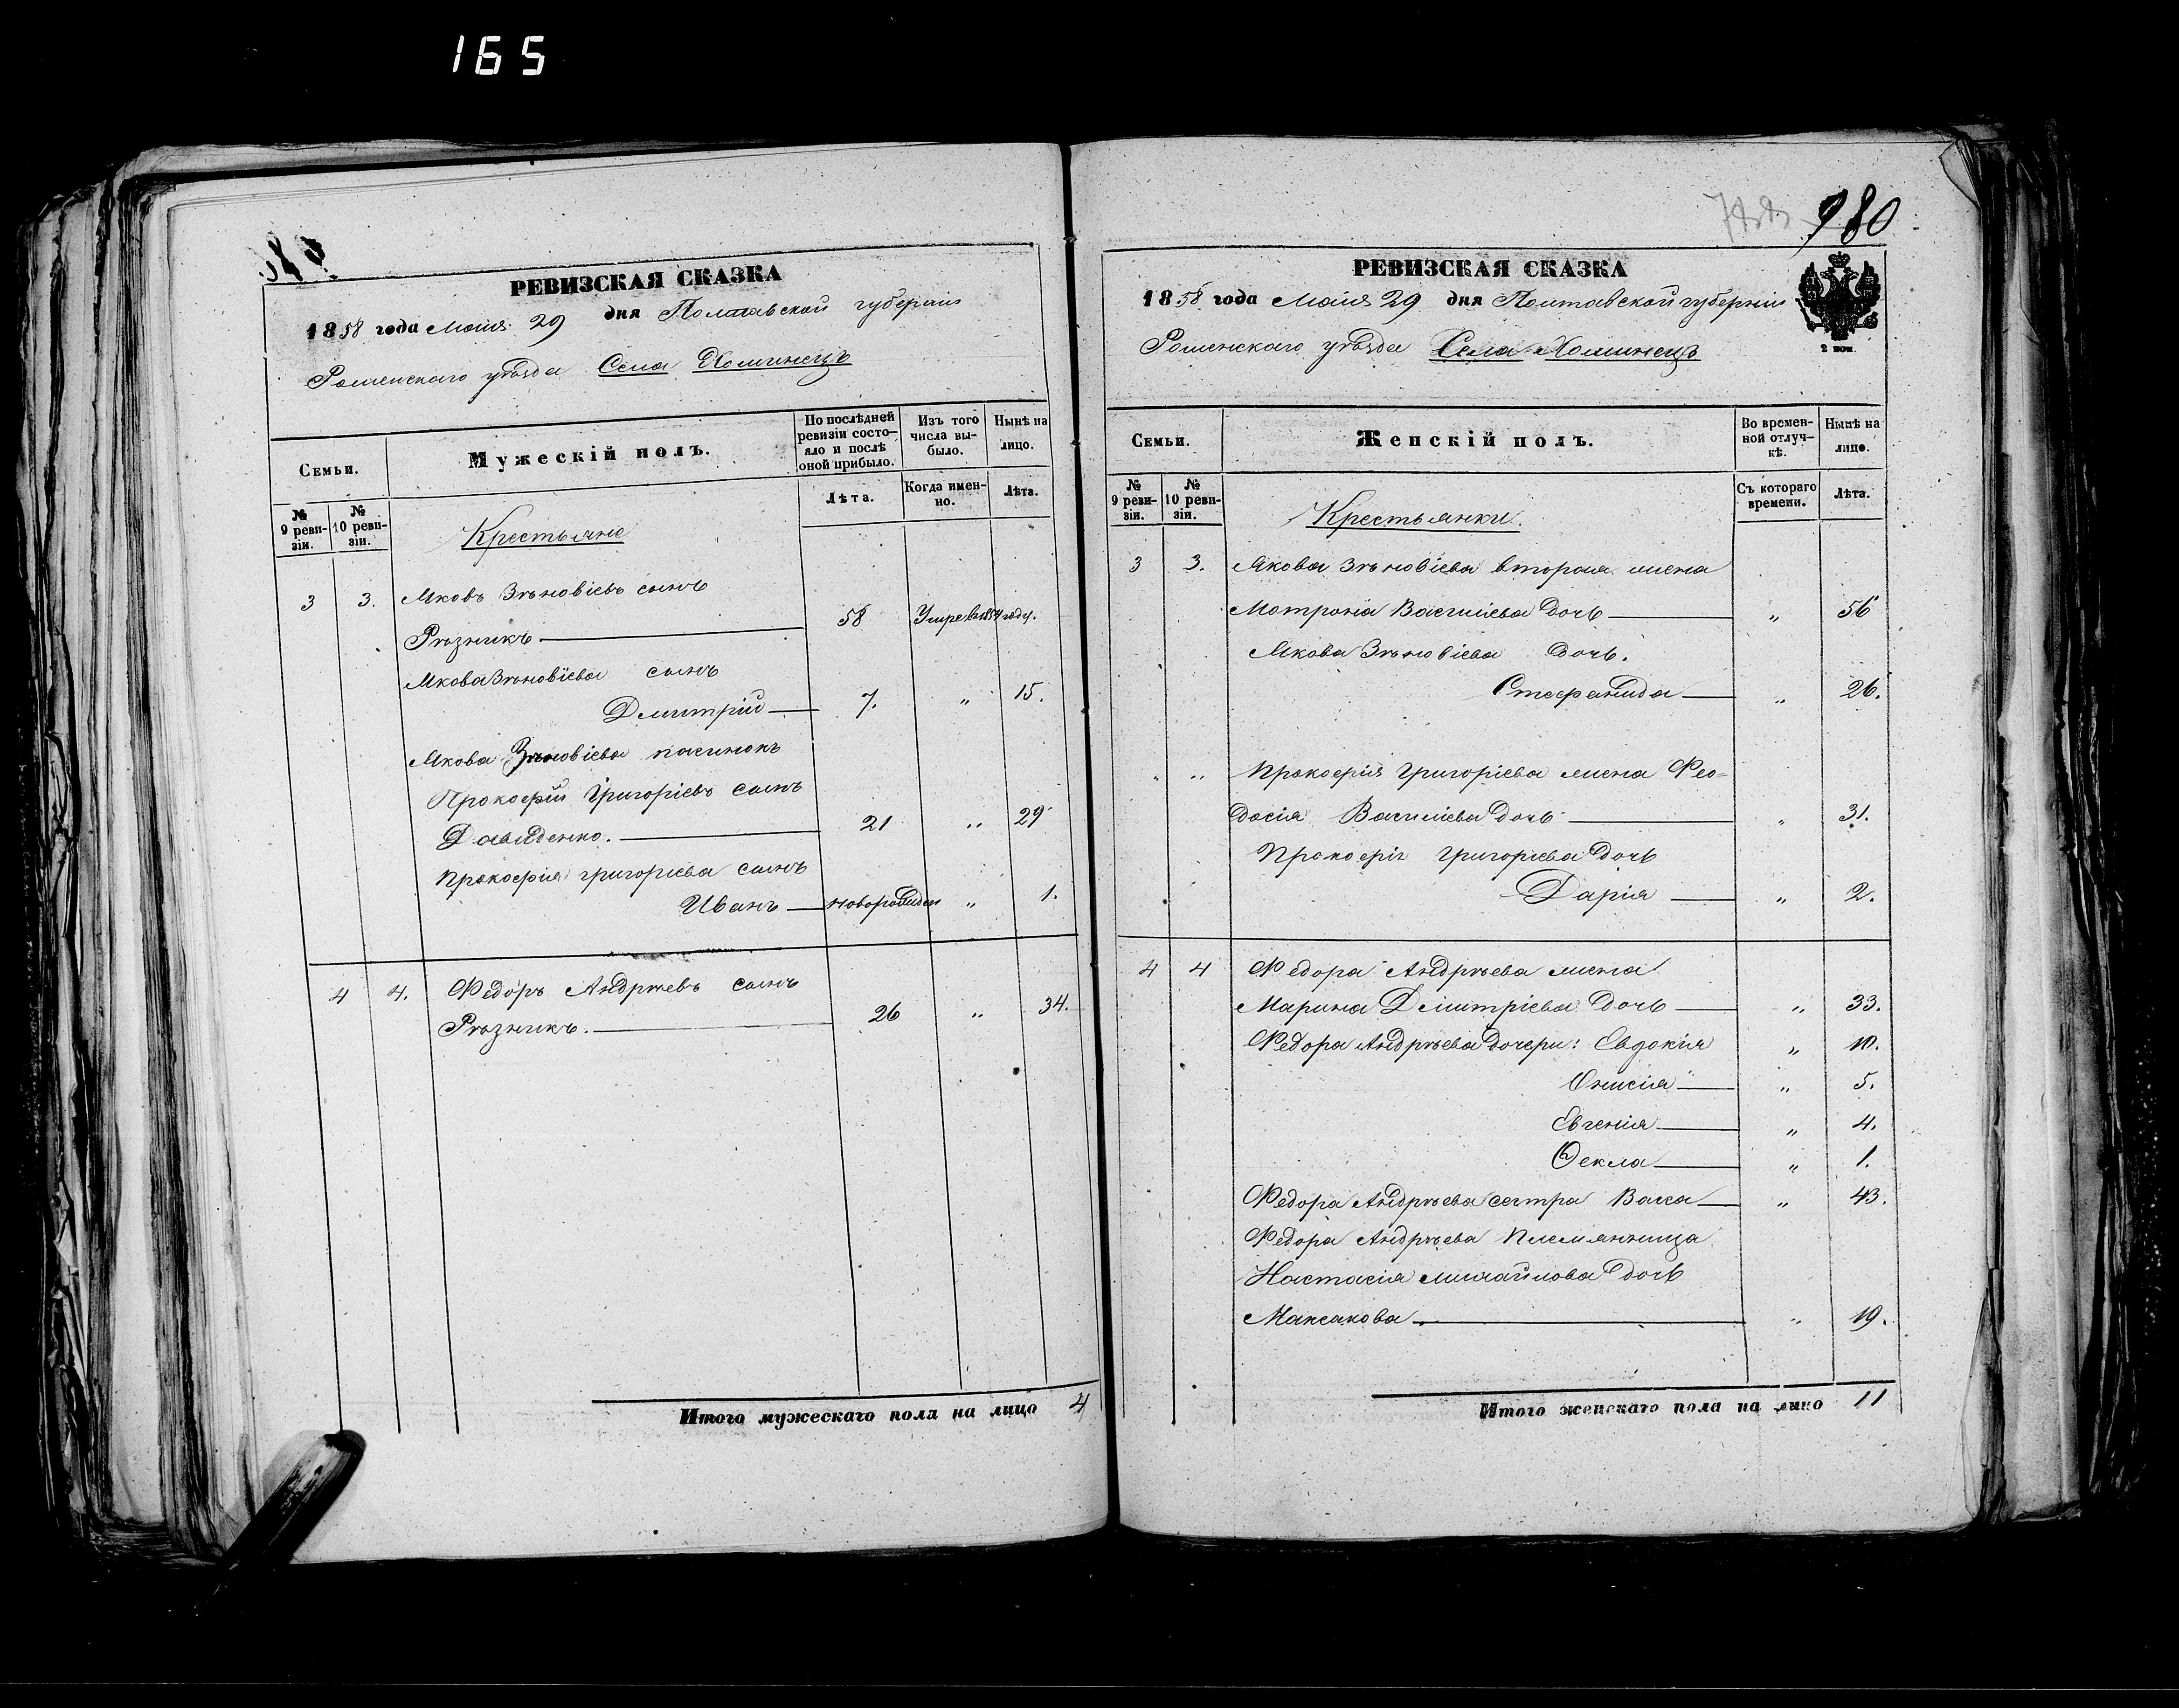 165
РЕВИЗСКАЯ СКАЗКА
1858 года Маія 29 дня Полтавской губерніи
Роменскаго уѣзда Села Хоминецъ
Семьи.
Мужескій полъ.
По послѣдней ревизіи состо-
яло и послѣ оной прибыло.
Изъ того числа вы-
было.
Нынѣ на лицо.
№ 9 реви-
зіи.
№ 10 реви-
зіи.
Лѣта.
Когда имен-
но.
Лѣта.
Крестьяне
3 3. Яковъ Зѣновіевъ сынъ
Рѣзникъ 58 Умре въ 1854 году.
Якова Зѣновіева сынъ
Дмитрій 7. „ 15.
Якова Зѣновіева пасинокъ
Прокофій Григоріевъ сынъ
Давиденко. 21 „ 29
Прокофія Григорієва сынъ
Иванъ новорожден „ 1.
4 4. Федоръ Андрѣевъ сынъ
Рѣзникъ. 26 „ 34.
Итого мужескаго пола на лицо 4
980
РЕВИЗСКАЯ СКАЗКА
1858 года Маія 29 дня Полтавской губерніи
Роменскаго уѣзда Села Хоминецъ
2 коп.
Семьи.
Женскій полъ.
Во времен-
ной отлуч-
кѣ.
Нынѣ на лицо.
№ 9 реви-
зіи.
№ 10 реви-
зіи.
Съ котораго времени.
Лѣта.
Крестьянки.
3 3. Якова Зѣновіева вторая жена
Мотрона Василіева дочь „ 56
Якова Зѣновіева дочь.
Стефанида „ 26.
„ „ Прокофія Григоріева жена Фео-
досія Василіева дочь „ 31.
Прокофія Григоріева дочь
Дарія „ 2.
4 4 Федора Андрѣева жена
Марина Дмитріева дочь „ 33.
Федора Андрѣева дочери: Евдокія „ 10.
Онисія „ 5.
Евгенія „ 4.
Фекла „ 1.
Федора Андрѣева сестра Васса „ 43.
Федора Андрѣева племянница
Настасія Михайлова дочь
Максакова „ 19.
Итого женскаго пола на лицо 11